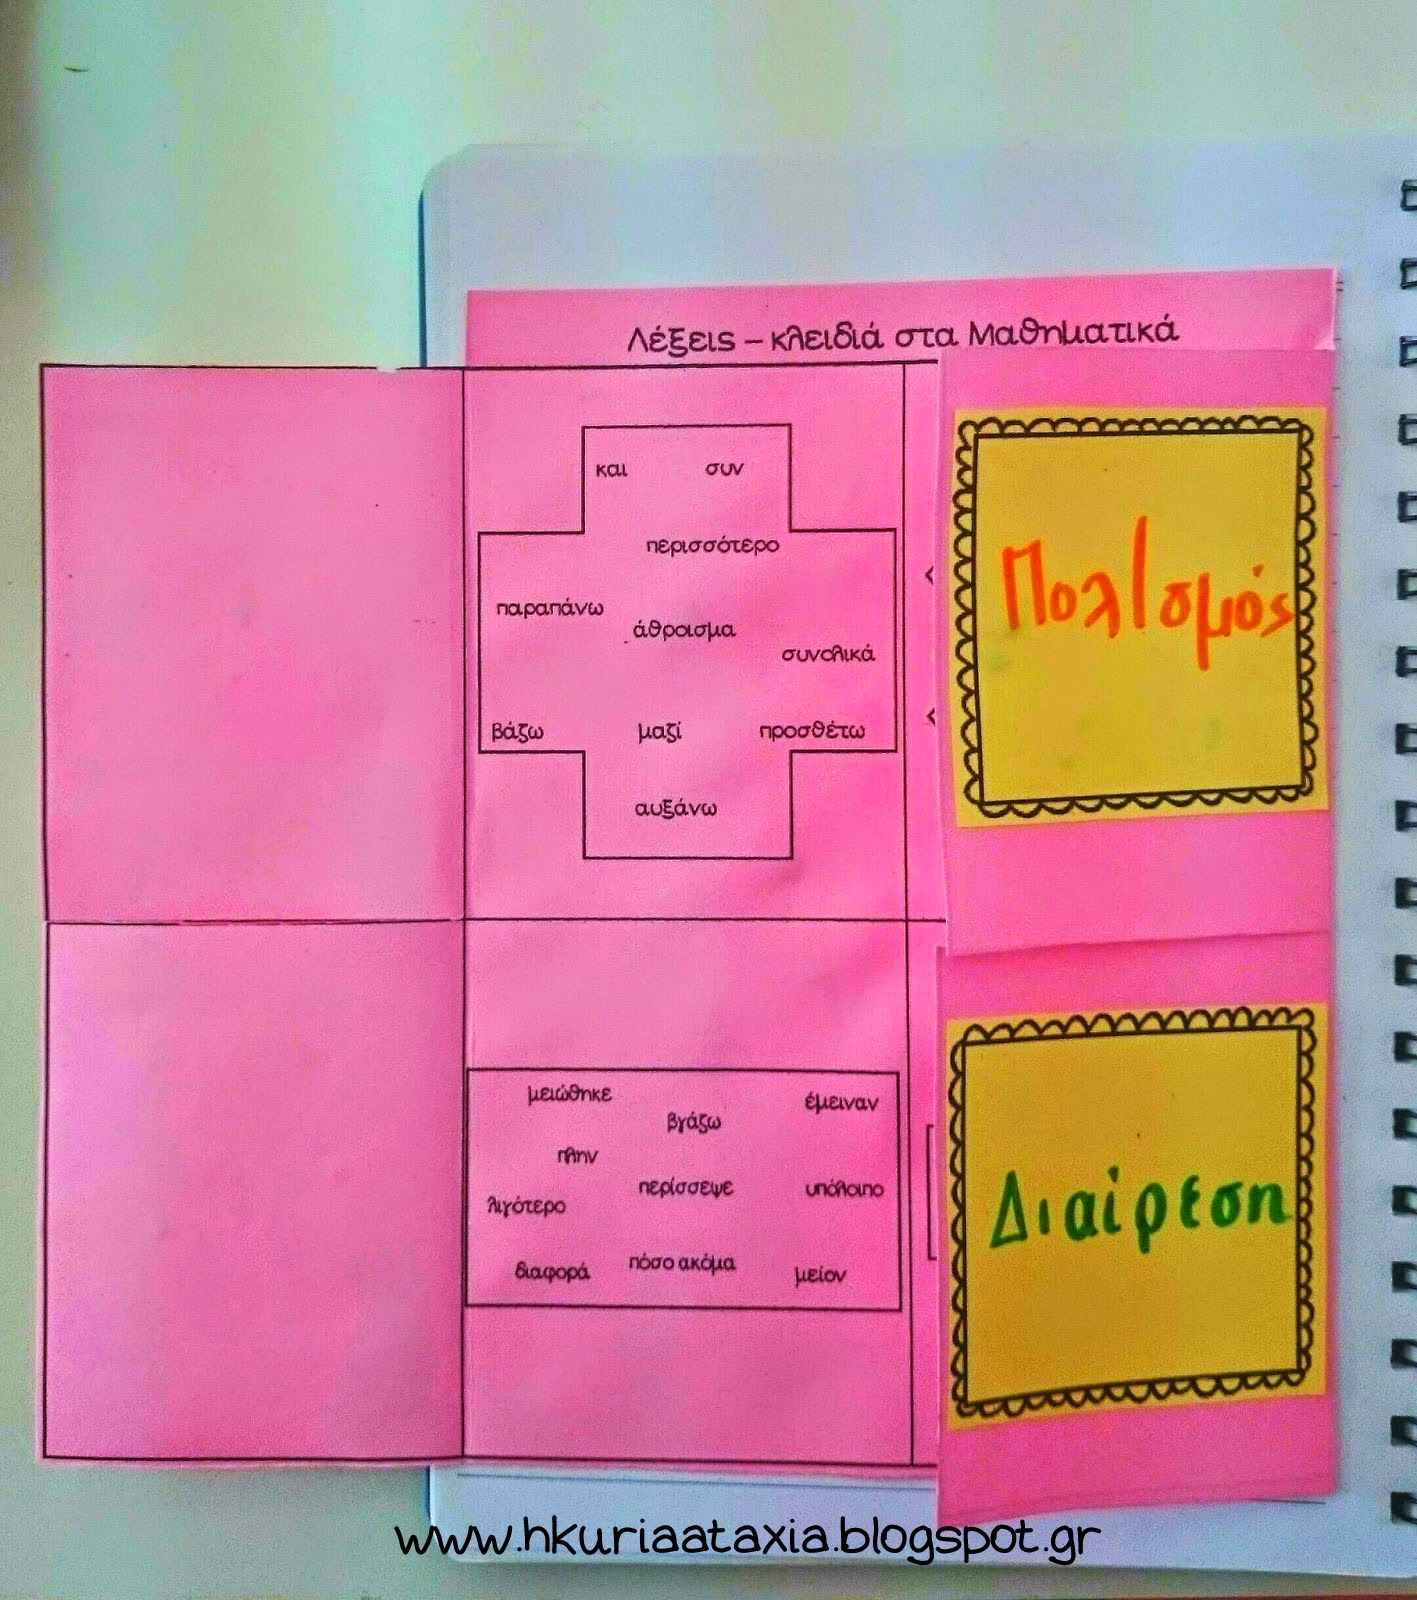 Λέξεις – κλειδιά στα Μαθηματικά
και συν
περισσότερο
παραπάνω
άθροισμα
συνολικά
βάζω μαζί προσθέτω
αυξάνω
Πολ/σμός
μειώθηκε
έμειναν
βγάζω
πλην
περίσσεψε υπόλοιπο
λιγότερο
πόσο ακόμα
διαφορά μείον
Διαίρεση
www.hkuriaataxia.blogspot.gr